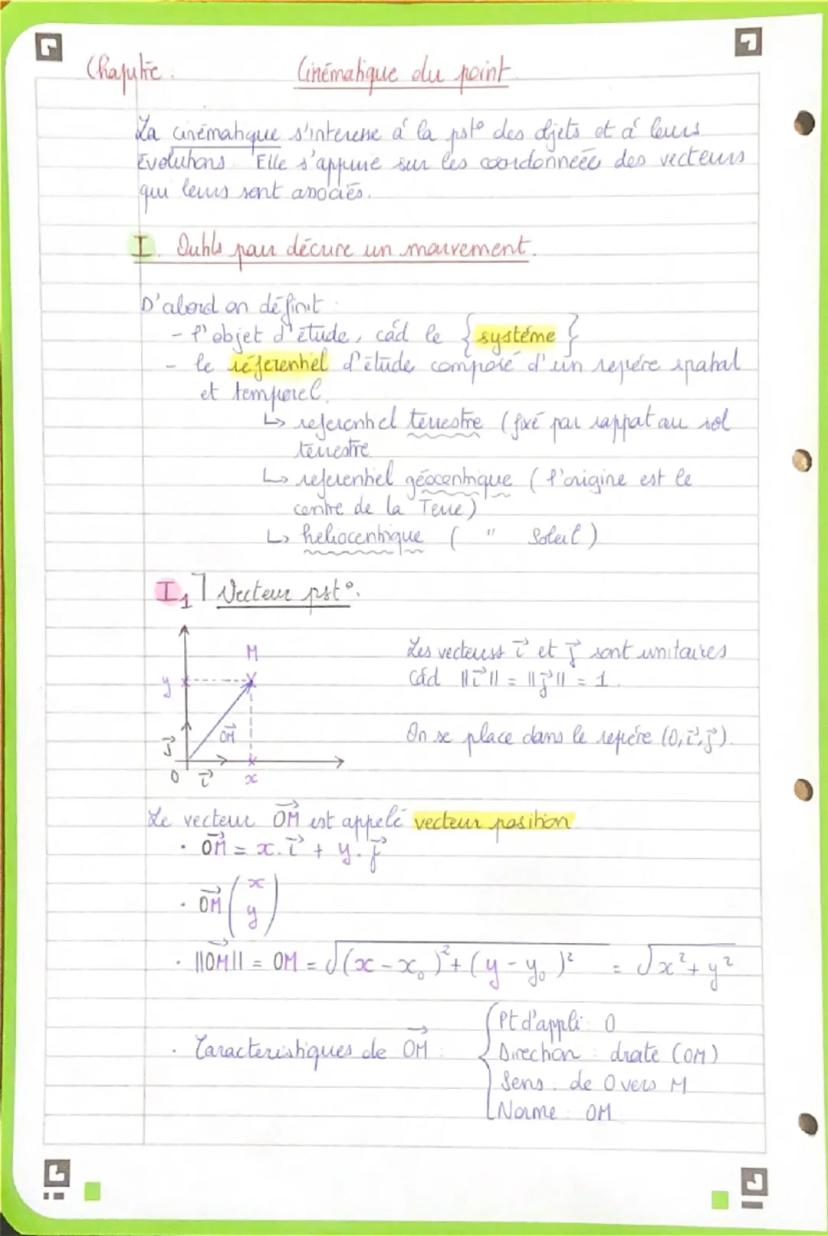 Chapitre : Cinématique du point
La cinématique s'interesse à la pst° des objets et à leurs
évolutions. Elle s'appuie sur les coordonnées des vecteurs
qui leurs sont associés.
I. Outils pour décrire un mouvement.
D'abord on définit :
- l'objet d'étude, càd le {système}
- le référentiel d'étude composé d'un repère spatial
et temporel.
↳ referentiel terrestre (fixé par rapport au sol
terrestre
↳ referentiel géocentrique (l'origine est le
centre de la Terre)
↳ heliocentrique ( " Soleil)
I₁ ] Vecteur pst°.
M
y
OM⃗
j⃗
O i⃗ x
Les vecteurs i⃗ et j⃗ sont unitaires
càd ||i⃗|| = ||j⃗|| = 1.
On se place dans le repère (O,i⃗,j⃗).
Le vecteur OM⃗ est appelé vecteur position
• OM⃗ = x.i⃗ + y.j⃗
• OM⃗ (x
y)
• ||OM⃗|| = OM = √(x-x₀)²+(y-y₀)² = √x²+y²
• Caracteristiques de OM⃗ :
{ Pt d'appli : O
Direction : droite (OM)
Sens : de O vers M
Norme : OM